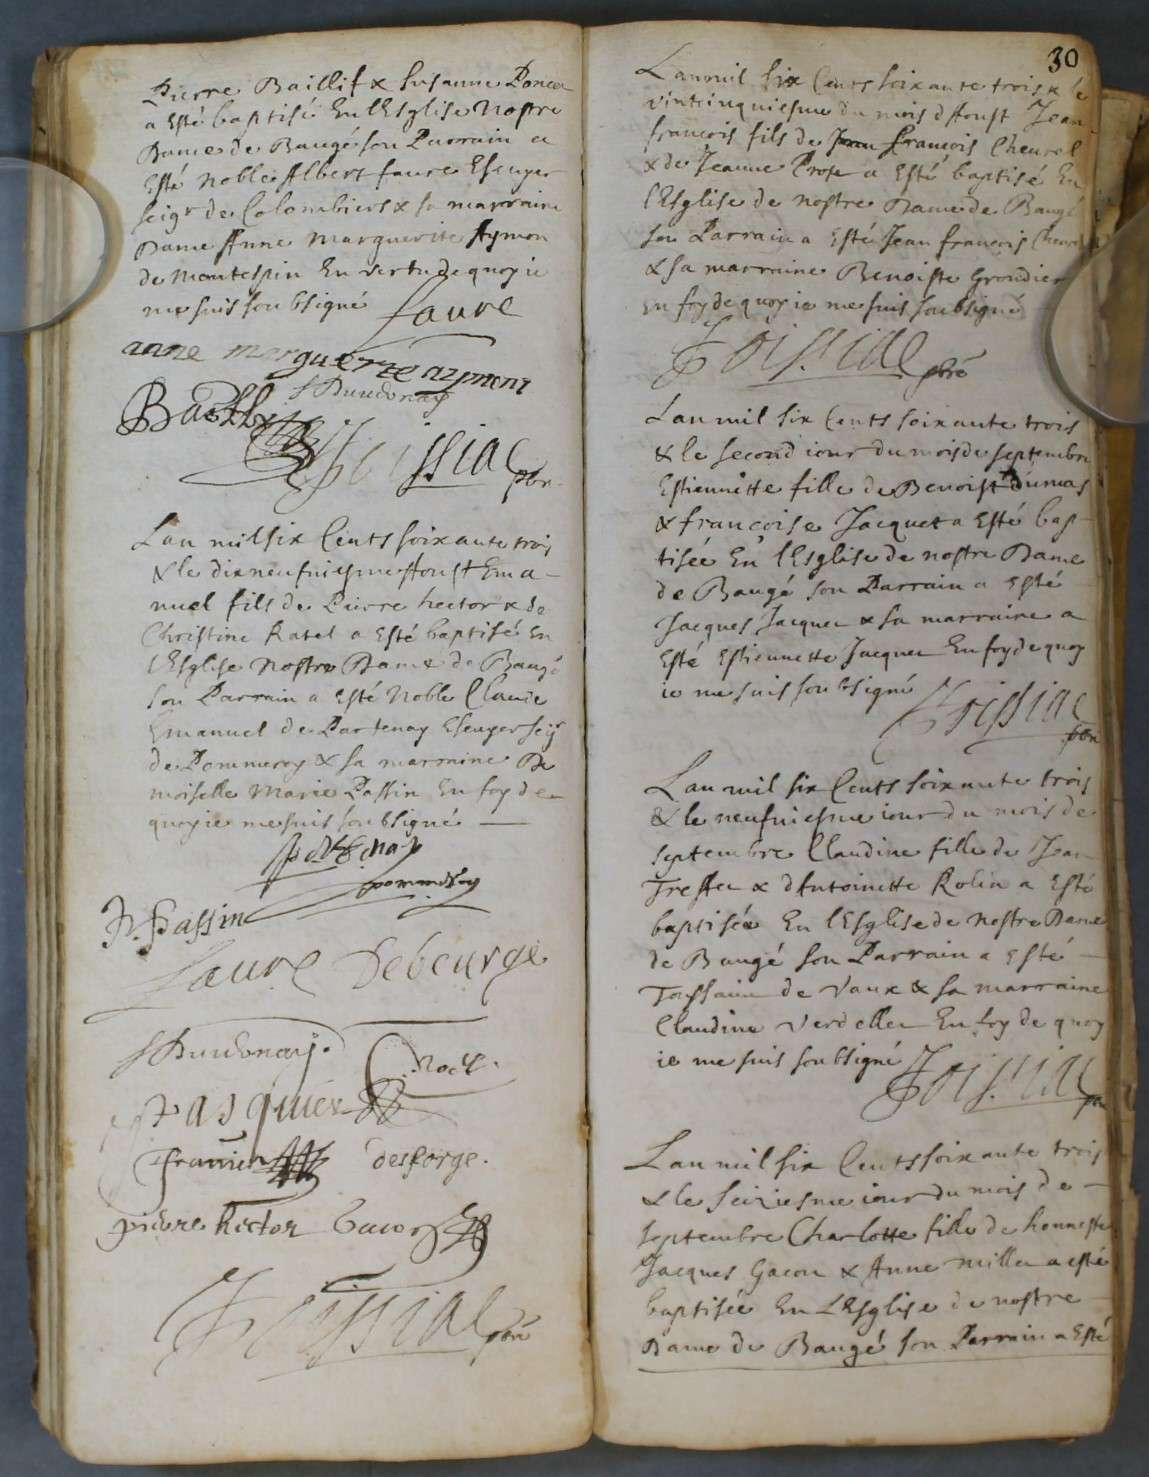 Pierre Baillif & Susanne Poncer
a Esté baptisé En l'Esglise Nostre
Dame de Baugé son Parrain a
Esté Noble Albert faure Escuyer
seigr de Colombiers & sa marraine
Dame Anne Marguerite Aymon
de Montespin En vertu de quoy ie
me suis soubsigné Faure
anne marguerite aymon
Toissiac pbr
Lan mil six Cents soixante trois
& le dixneufuiesme Aoust Ema-
nuel fils de Pierre hector & de
Christine Ratel a Esté baptisé En
l'Esglise Nostre Dame de Baugé
son Parrain a Esté Noble Claude
Emanuel de Partenay Escuyer seigr
de Pommeroy & sa marraine De
moiselle Marie Passin En foy de
quoy ie me suis soubsigné
partenay
pommeroy
Passin
Faure Debeurge
Noel
Pasquier
desforge.
pierre hector
Toissiac pbré
30
Lan mil six Cents soixante trois & le
vintcinquiesme du mois d'Aoust Jean
francois fils de francois Cheurel
& de Jeanne Prost a Esté baptisé En
l'Esglise de nostre Dame de Baugé
son Parrain a Esté Jean francois Cheurel
& sa marraine Benoiste Grondier
En foy de quoy ie me suis soubsigné
Toissiac pbré
Lan mil six Cents soixante trois
& le second iour du mois de septembre
Estiennette fille de Benoist dumas
& francoise Jacquet a Esté bap-
tisée En l'Esglise de nostre Dame
de Baugé son Parrain a Esté
Jacques Jacquet & sa marraine a
Esté Estiennette Jacquet En foy de quoy
ie me suis soubsigné
Toissiac
pbr
Lan mil six Cents soixante trois
& le neufuiesme iour du mois de
septembre Claudine fille de Jean
& d'Antoinette Rolin a Esté
baptisée En l'Esglise de Nostre Dame
de Baugé son Parrain a Esté
Toussain de Vaux & sa marraine
Claudine Verdellet En foy de quoy
ie me suis soubsigné
Toissiac
pbr
Lan mil six Cents soixante trois
& le seiziesme iour du mois de
septembre Charlotte fille de honneste
Jacques Gacon & Anne millet a esté
baptisée En L'Esglise de nostre
Dame de Baugé son Parrain a Esté